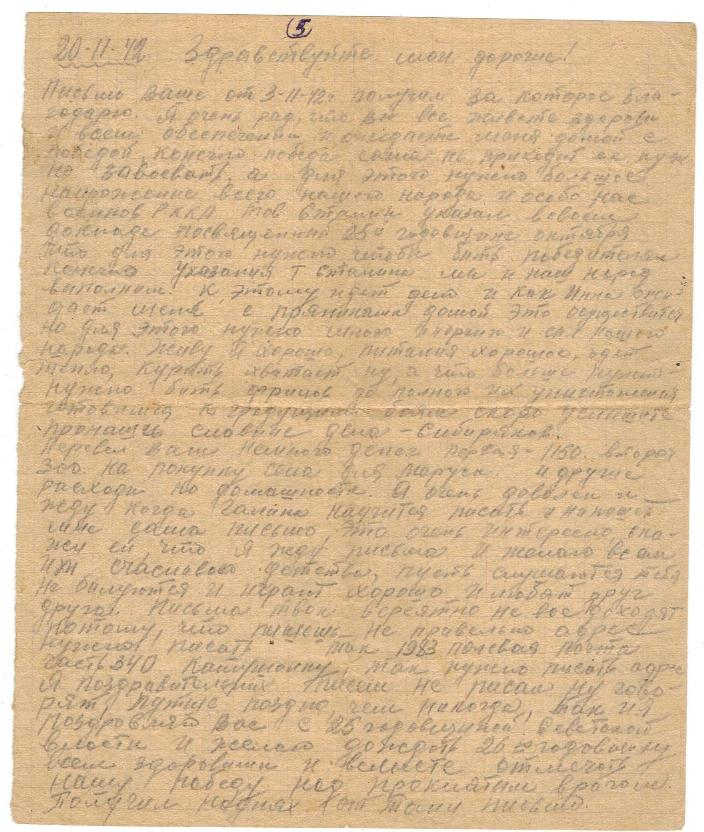 5
20-11-42. Здравствуйте мои дорогие!
Письмо Ваше от 3-11-42г получил за которое бла-
годарю. Я очень рад, что Вы все живете здоровы
и всем обеспечены и ожидаете меня домой с
победой, конечно победа сама не приходит ее нуж
но завоевать, а для этого нужно большое
напряжение всего нашего народа и особо нас
воинов РККА тов Сталин указал в своем
докладе посвященный 25й годовщине октября
что для этого нужно чтобы быть победителем
конечно указания т Сталина мы и наш народ
выполним. К этому идет дело и как Инна ожи-
дает меня с пряниками домой это осуществится
но для этого нужно много энергии и сил нашего
народа. Живу я хорошо, питания хорошое, одет
тепло, курить хватает ну, а что больше нужно
нужно бить фрицов до полного их уничтожения
готовимся к грядущим боям скоро услышете
про нашеь славние дела - Сибиряков.
Перевел Вам немного денег первая - 1150. вторая
300. на покупку сена для Маруси. и другие
расходи по домашности. Я очень доволен и
жду когда Галина научится писать и напишет
мне сама письмо, это очень интересно, ска-
жу ей, что я жду письма и желаю всем
им счасливого детства, пусть слушаются тебя
не балуются и играют хорошо и любят друг
друга. Письма твои вероятно не все доходят
потому, что пишешь не правельно адрес
нужно писать так 1983 полевая почта
часть 340 , так нужно писать адрес
Я поздравительних писем не писал ну гово-
рят лутше поздно чем никогда, так и я
поздровляю Вас с 25 годовщиной Советской
власти и желаю дождать 26ю годовщину
всем здоровыми и вместе отмечать
нашу победу над проклятим врагом.
Получил на днях от Тани письмо.